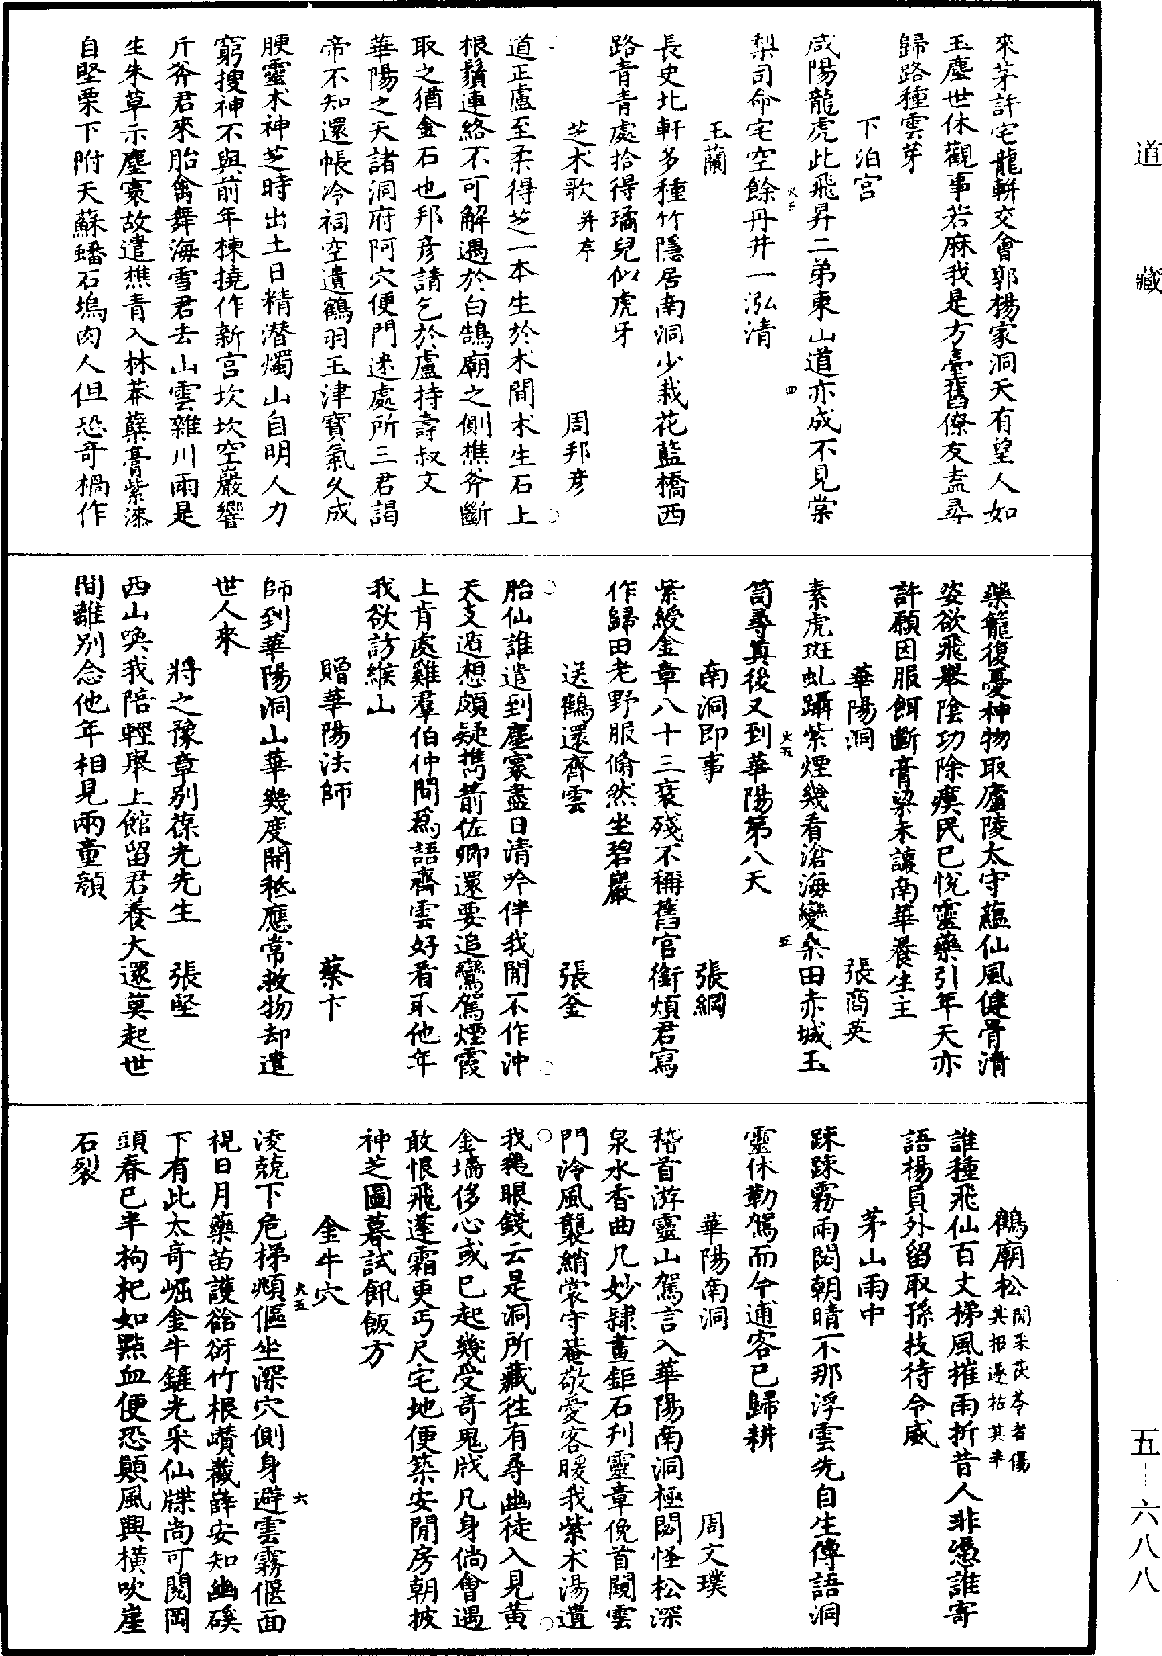 道藏
來茅許宅龍軿交會郭楊家洞天有望人如
玉塵世休觀事若麻我是方臺舊僚友盍尋
歸路種雲芽
下泊宮
咸陽龍虎此飛昇二弟東山道亦成不見棠
梨司命宅空餘丹井一泓清
玉蘭
長史北軒多種竹隱居南洞少栽花藍橋西
路青青處拾得璚兒似虎牙
芝朮歌并序 周邦彥
道正盧至柔得芝一本生於朮間朮生石上
根鬚連絡不可解遇於白鵠廟之側樵斧斷
取之猶金石也邦彥請乞於盧持壽叔文
華陽之天諸洞府阿穴便門迷處所三君謁
帝不知還帳冷祠空遺鶴羽玉津寶氣久成
腴靈朮神芝時出土日精潜燭山自明人力
窮搜神不與前年棟撓作新宮坎坎空巖響
斤斧君來胎禽舞海雪君去山雲雜川雨是
生朱草示塵寰故遣樵青入林莽蘖膏紫漆
自堅栗下附天蘇蟠石塢肉人但恐奇禍作
藥籠復憂神物取廬陵太守藴仙風健骨清
姿欲飛舉陰功除瘼民已悅靈藥引年天亦
許願因服餌斷膏粱未讓南華養生主
華陽洞 張商英
素虎斑虬躡紫煙幾看滄海變桑田赤城玉
笥尋真後又到華陽第八天
南洞即事 張綱
紫綬金章八十三衰殘不稱舊官銜煩君寫
作歸田老野服翛然坐碧巖
送鶴還齊雲 張釜
胎仙誰遣到塵寰盡日清吟伴我閒不作沖
天支遁想頗疑攜箭佐卿還要追鸞駕煙霞
上肯處雞羣伯仲間爲語齊雲好看承他年
我欲訪緱山
贈華陽法師 蔡卞
師到華陽洞山華幾度開秪應常救物却遣
世人來
將之豫章別葆光先生 張堅
西山喚我陪輕舉上館留君養大還莫起世
間離別念他年相見兩童顏
鶴廟松間釆茯苓者傷其根遂枯其半
誰種飛仙百丈梯風摧雨折昔人非憑誰寄
語楊員外留取孫技待令威
茅山雨中
踈踈霧雨閟朝晴不那浮雲先自生傳語洞
靈休勒駕而今逋客已歸耕
華陽南洞 周文璞
稽首游靈山駕言入華陽南洞極閟怪松深
泉水香曲几妙隸畫鉅石刋靈章俛首闖雲
門泠風襲綃裳守菴敬愛客暖我紫朮湯遺
我鵝眼錢云是洞所藏往有尋幽徒入見黃
金墻侈心或已起幾受奇鬼戕凡身倘會遇
敢恨飛蓬霜更丐尺宅地便築安閒房朝披
神芝圖暮試䬪飯方
金牛穴
淩兢下危梯頫傴坐深穴側身避雲霧偃面
視日月藥苗護谽谺竹根巑巀嶭安知幽磎
下有此太奇崛金牛鏟光釆仙牒尚可閱岡
頭春已半枸杞如點血便恐顛風興橫吹崖
石裂
五—六八八